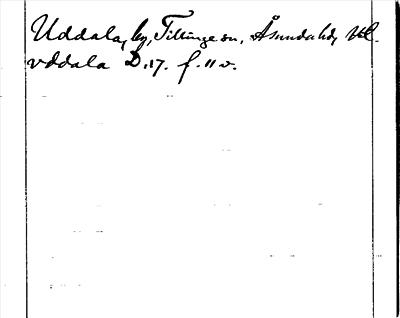 Uddala, by, Tillinge sn, Åsundahd, Upl.
vddala D.17. f. 11 v.